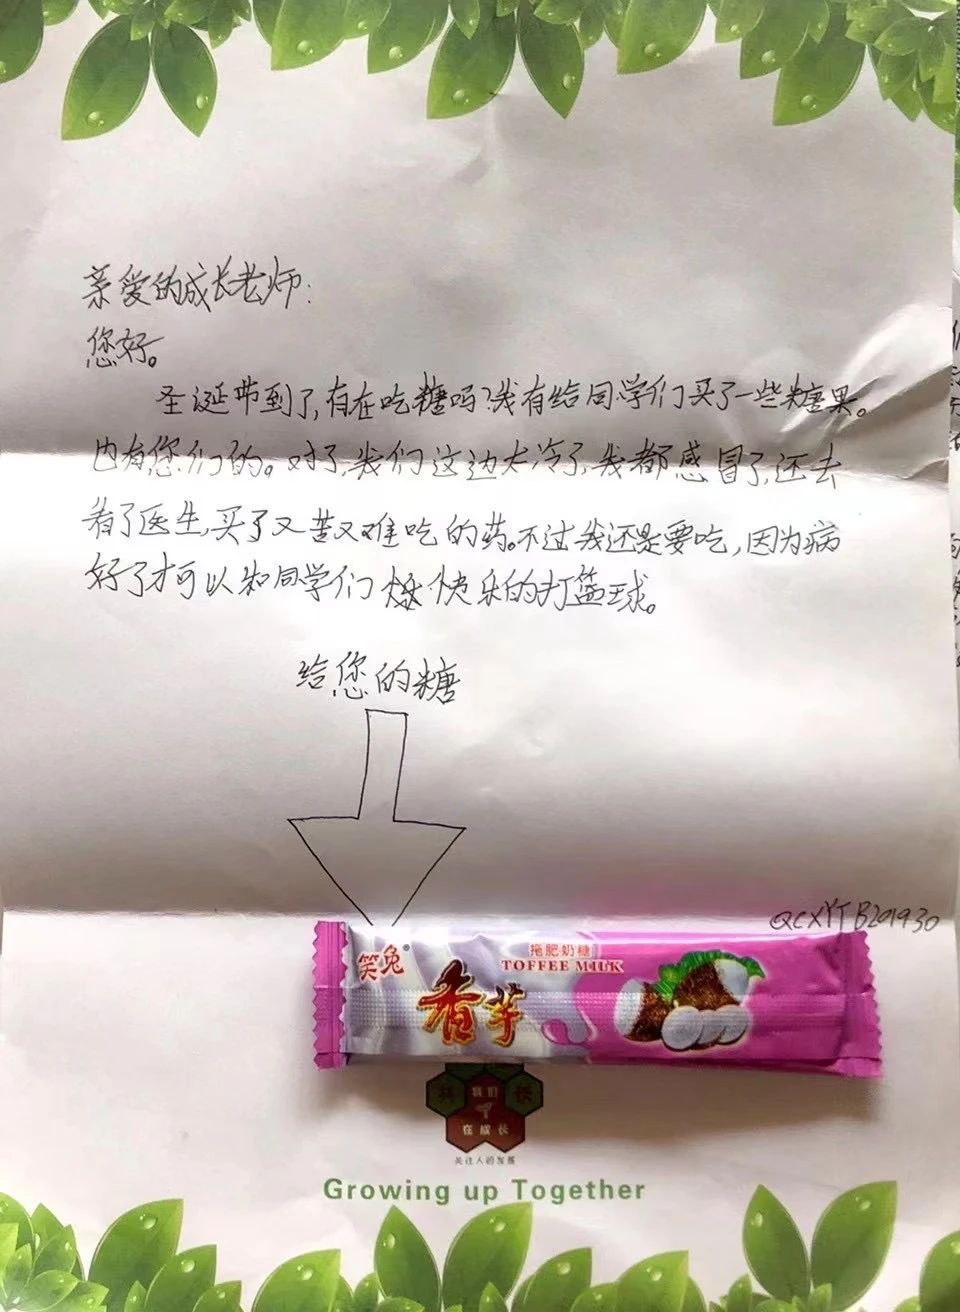 亲爱的成长老师:
您好。
圣诞节到了,有在吃糖吗?我有给同学们买了一些糖果。
内有您们的。对了,我们这边太冷了,我都感冒了,还去
看了医生,买了又苦又难吃的药。不过我还是要吃,因为病
好了才可以和同学们快乐的打篮球。
给您的糖
QCXYTB201930
笑兔®
拖肥奶糖
TOFFEE MILK
香芋
共 我们 长
在成长
关注人的发展
Growing up Together